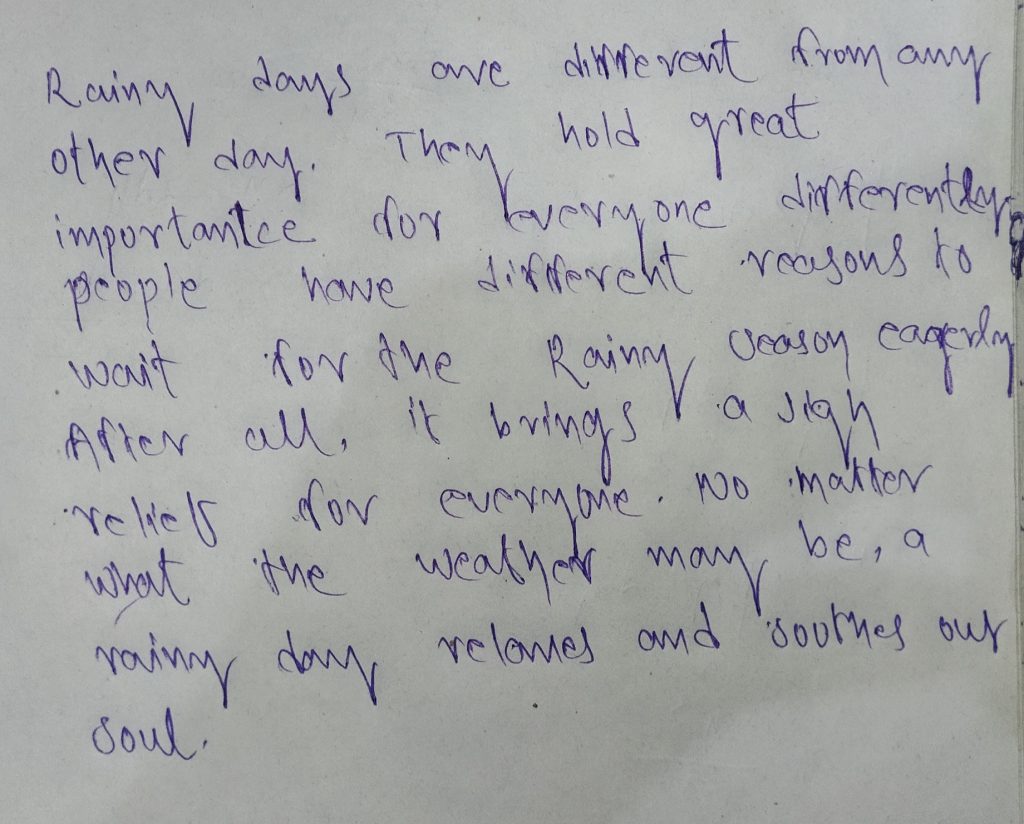 Rainy days are different from any
other day. They hold great
importantce for everyone differently
people have different reasons to
wait for the Rainy season eagerly
After all, it brings a sigh
relief for everyone. No matter
what the weather may be, a
rainy day relaxes and soothes our
soul.